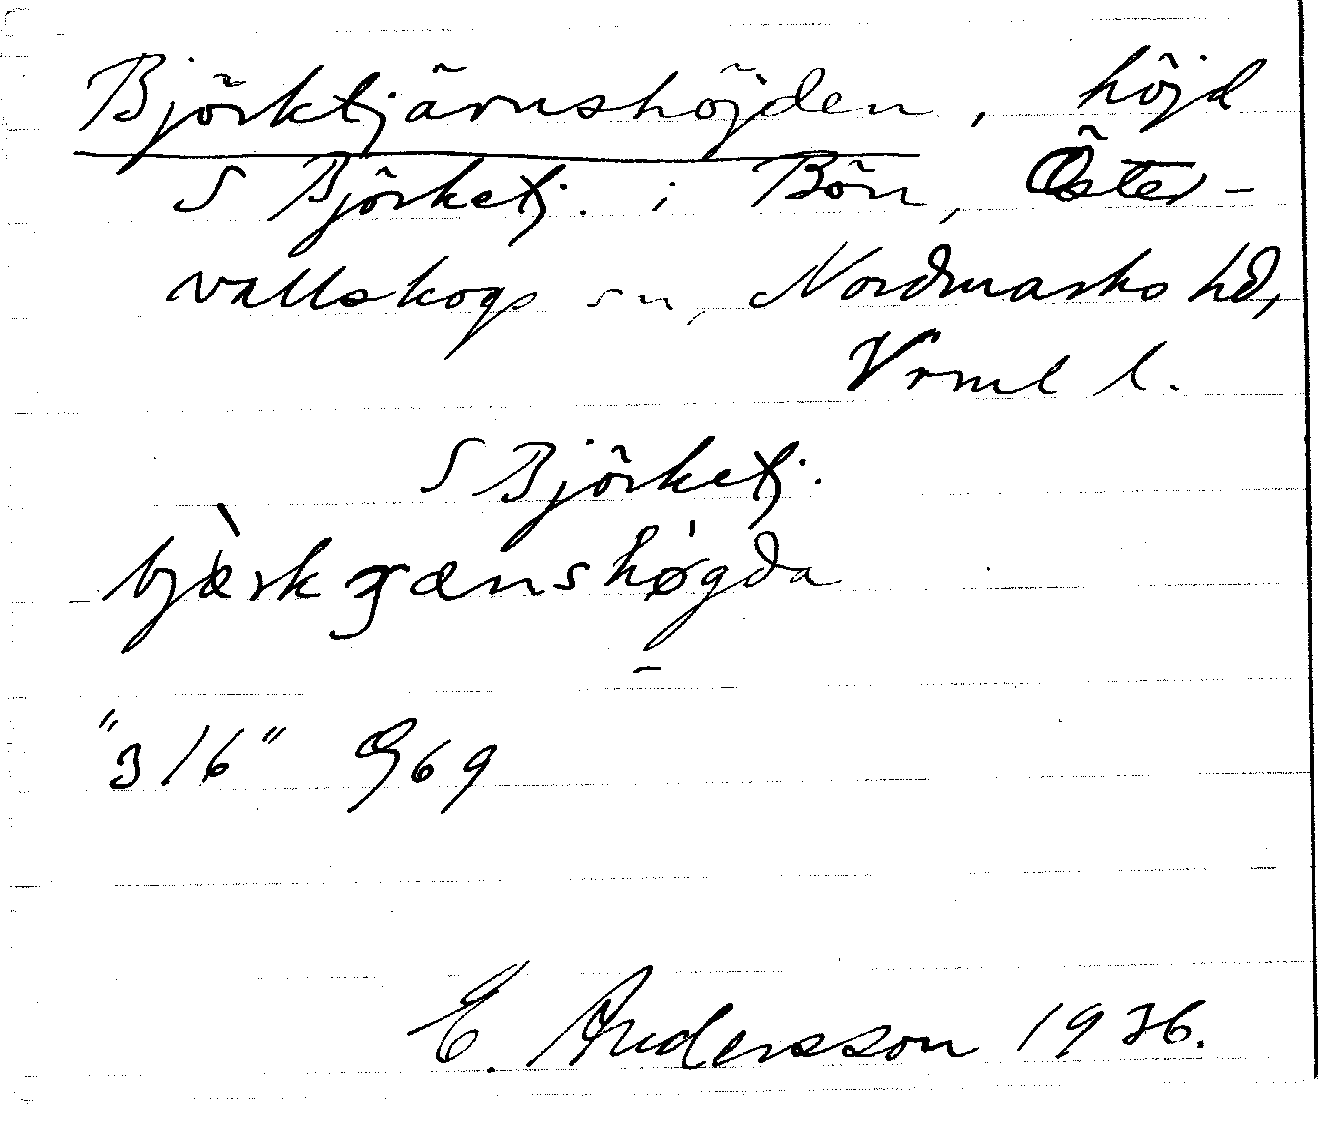 Björktjärnshöjden, höjd
S Björketj. i Bön, Öster-
vallskogs sn, Nordmarks hd,
Vrml l.
S Björketj.
bjærkȷænshøgda
"316" G69
E. Andersson 1936.